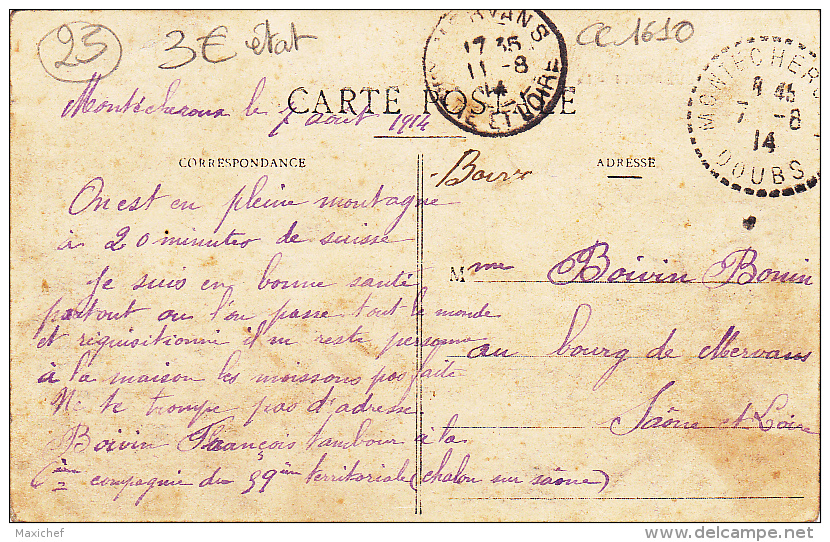 23
3€ état
CC 1610
MERVANS
17 35
11 -8
14
SAONE ET LOIRE
MONTECHEROUX
7 -8
14
DOUBS
CARTE POSTALE
Montécheroux le 7 août 1914
CORRESPONDANCE
ADRESSE
On est en pleine montagne
à 20 minutes de suisse
Je suis en bonne santé
partout ou l'on passe tout le monde
et riquisitionni il n'i reste personne
à la maison les moissons pas faite
Ne te trompe pas d'adresse
Boivin François tambour à la
compagnie du 59ème territoriale (chalon sur saône)
Mme Boivin Bonin
au bourg de Mervans
Saône et Loire
Maxichef
www.delcampe.net